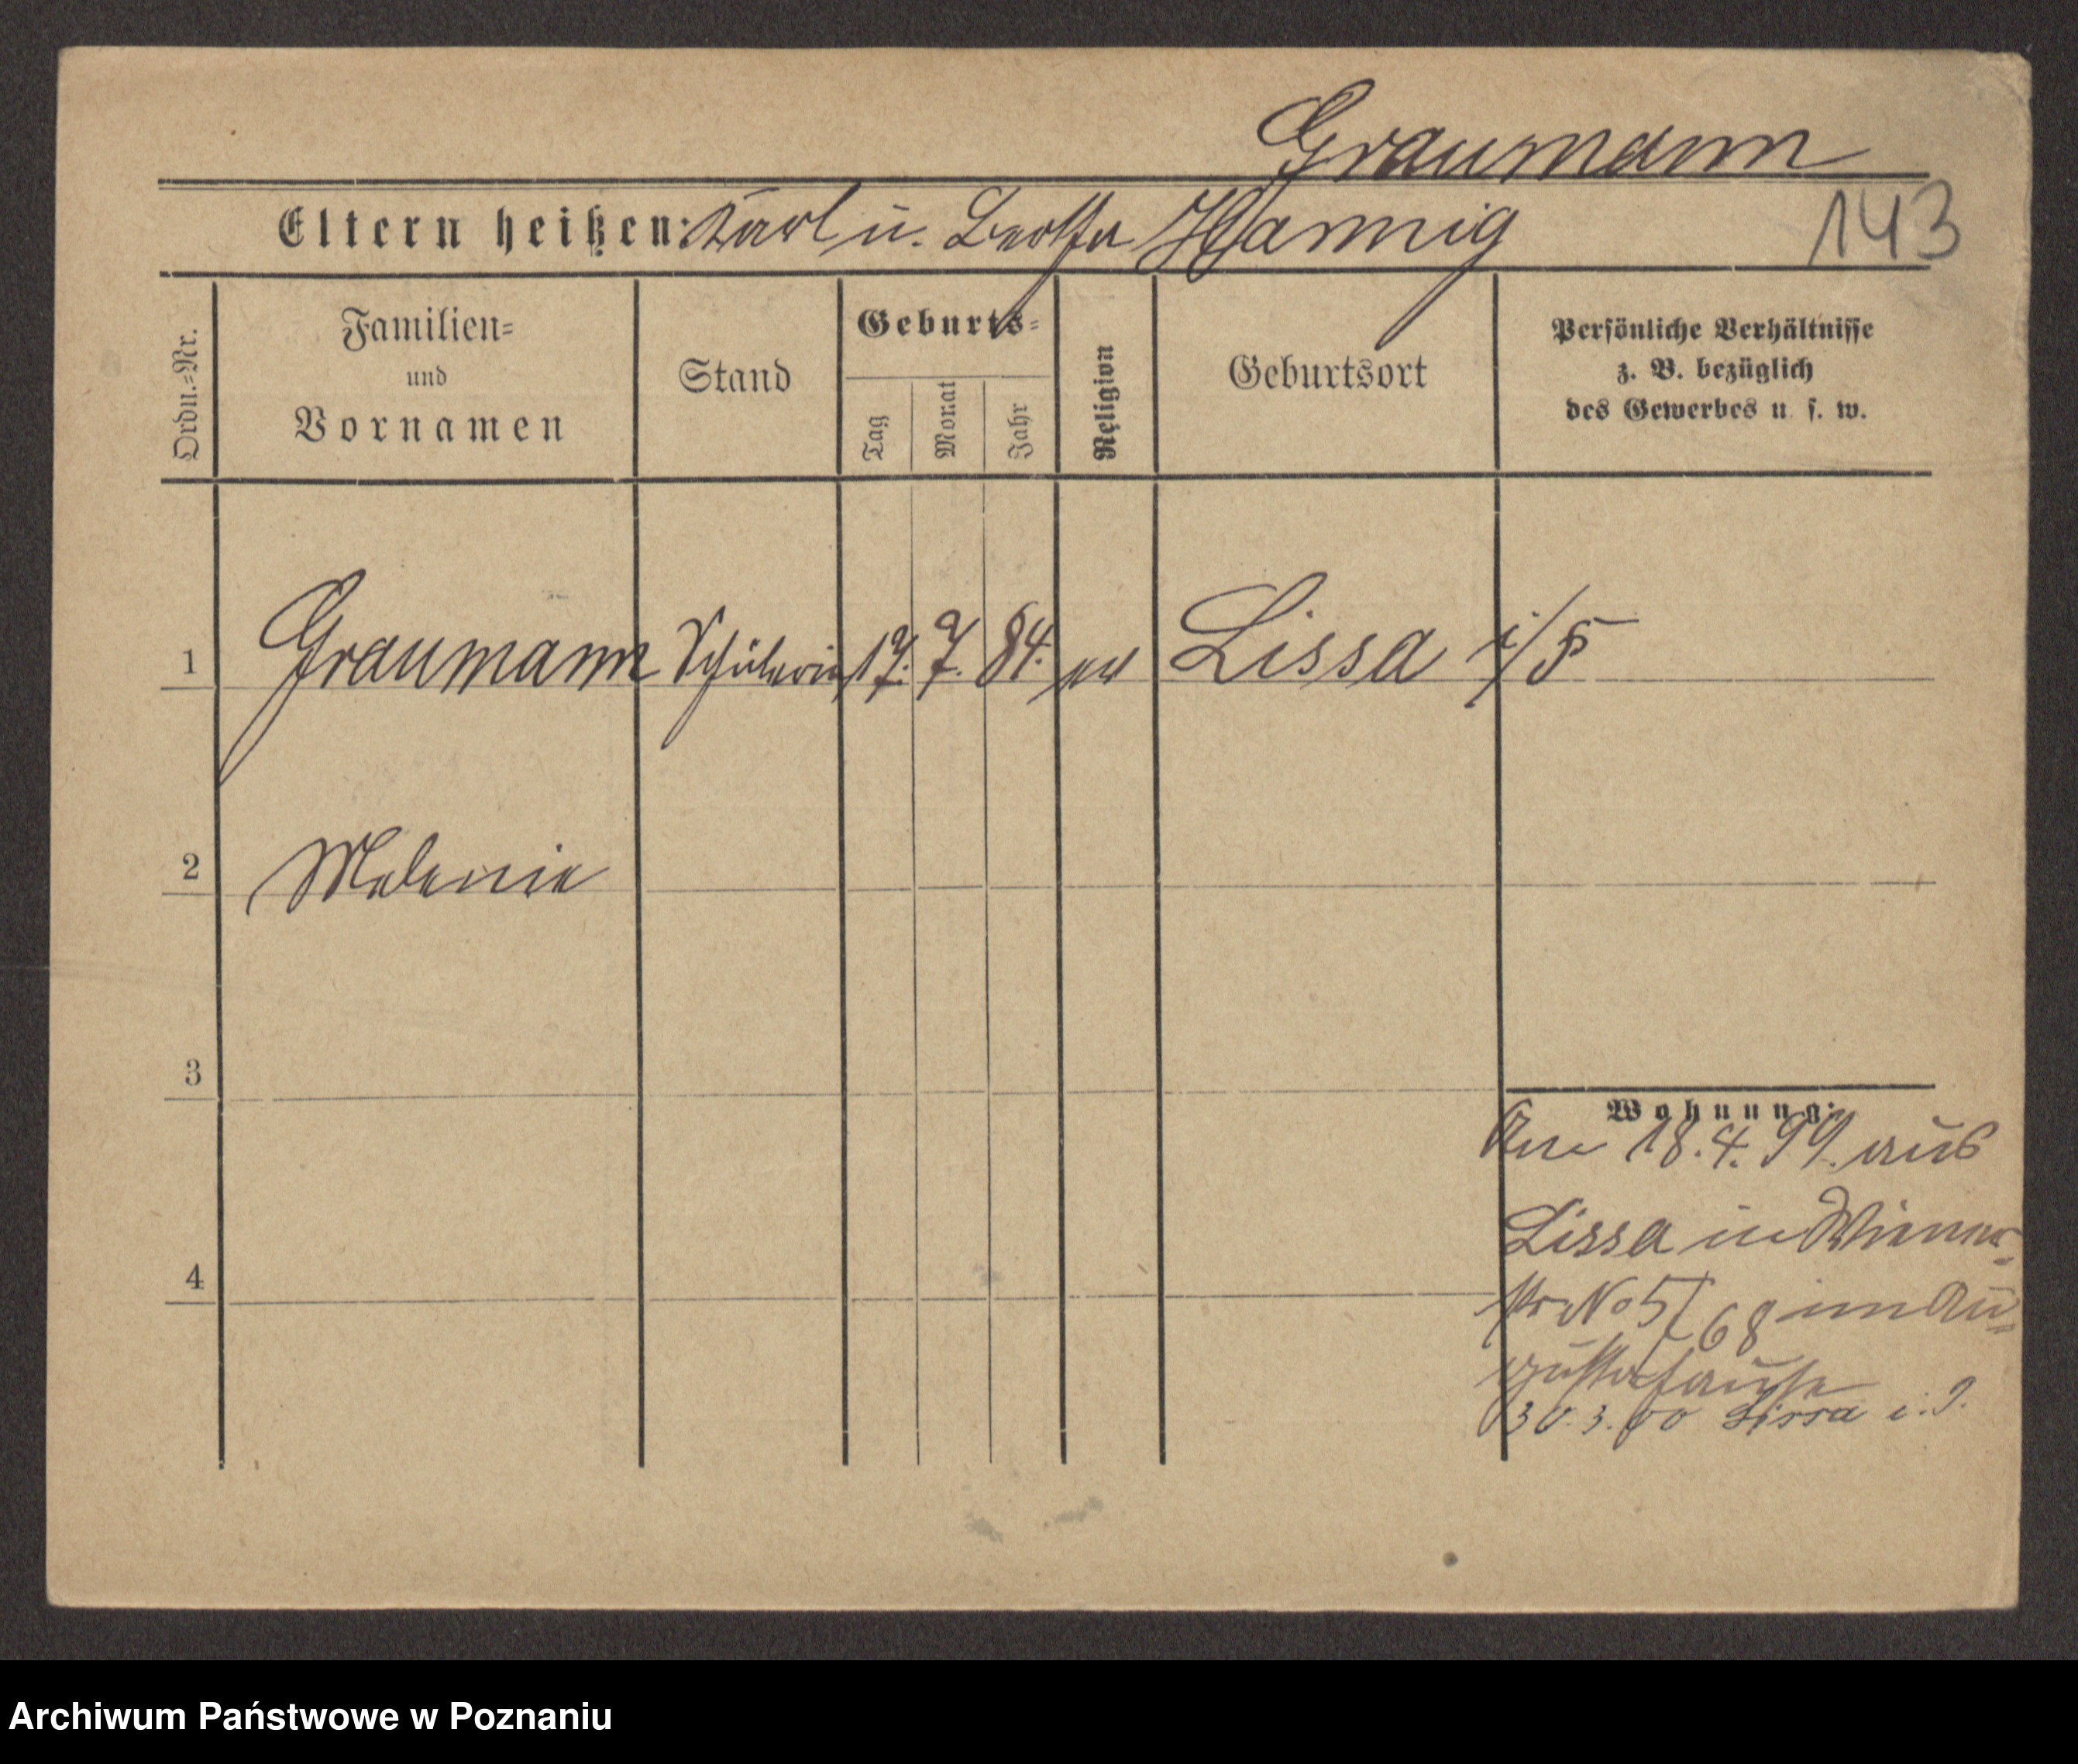 Graumann
Eltern heißen: Karl u. Bertha Hannig
143
Ordn.-Nr.
Familien-
und
Vornamen
Stand
Geburts-
Tag
Monat
Jahr
Religion
Geburtsort
Persönliche Verhältnisse
z. B. bezüglich
des Gewerbes u. s. w.
1 Graumann Schülerin 17. 7. 84. ev Lissa i/P
2 Melanie
3
4
Wohnung:
Am 18.4.99. aus
Lissa in Wiener-
str No 5/68 im Au-
gustahause
30.3.00 Lissa i. P.
Archiwum Państwowe w Poznaniu